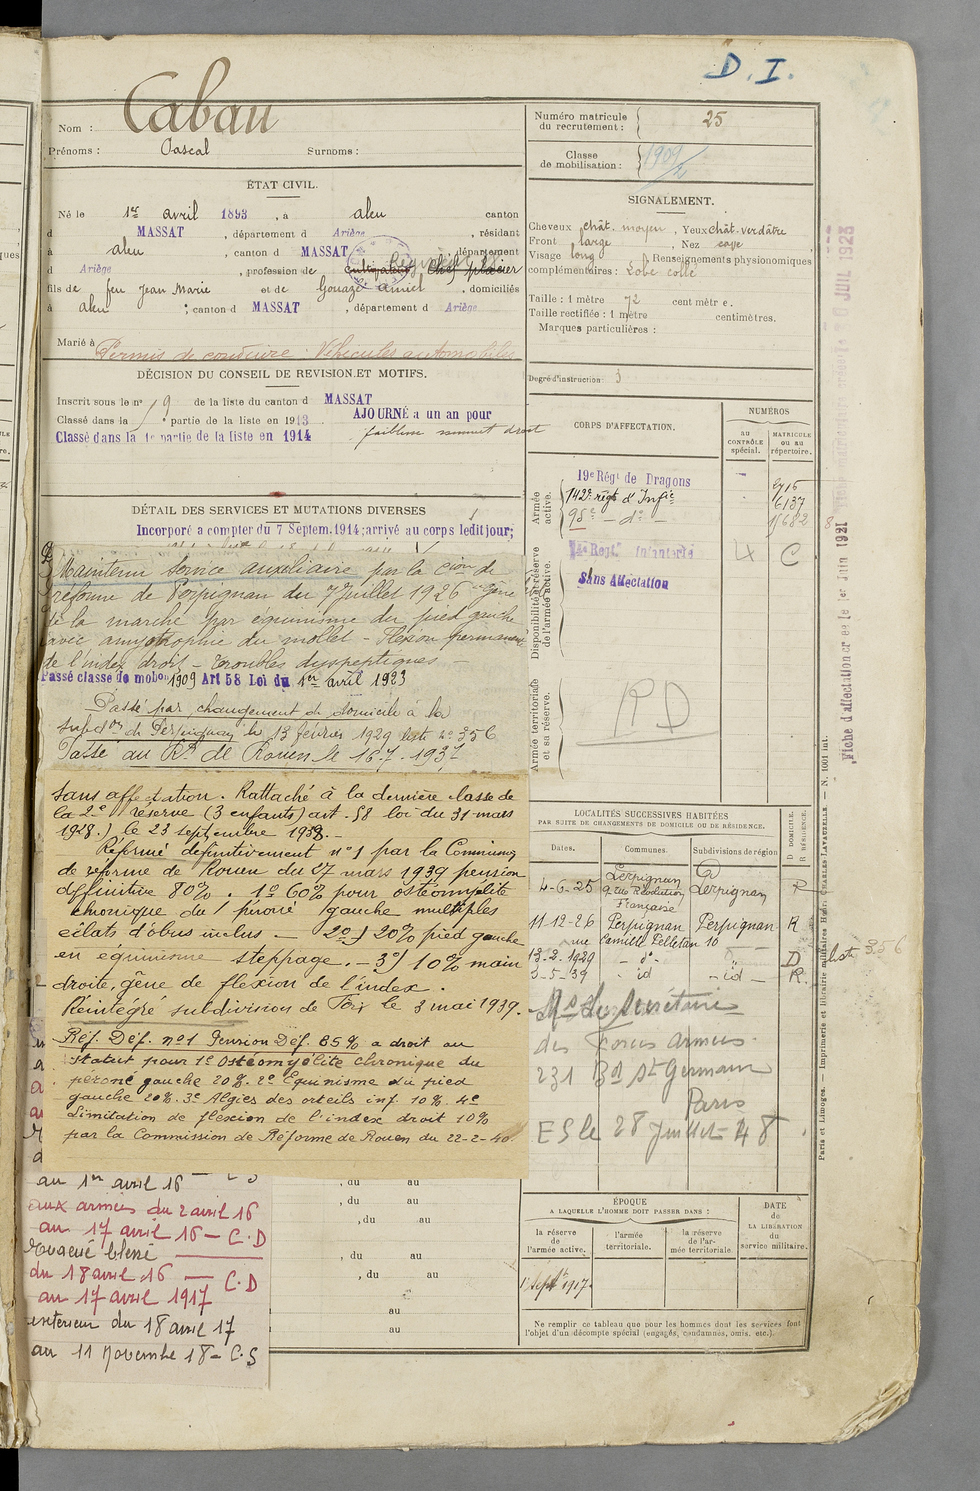 D. I.
Nom : Cabau
Prénoms : Pascal Surnoms :
ÉTAT CIVIL.
Né le 1er avril 1893, à aleu canton
d MASSAT, département d Ariège, résidant
à aleu, canton d MASSAT, département
d Ariège, profession de cultivateur Chef placier
fils de feu Jean Marie et de Gouazé domiciliés
à aleu ; canton d MASSAT, département d Ariège
Marié à
Permis de conduire : Véhicules automobiles
DÉCISION DU CONSEIL DE REVISION ET MOTIFS.
Inscrit sous le no 9 de la liste du canton d MASSAT
Classé dans la partie de la liste en 1913 AJOURNÉ a un an pour
Classé dans la 1e partie de la liste en 1914 faiblesse sommet droit
DÉTAIL DES SERVICES ET MUTATIONS DIVERSES
Incorporé a compter du 7 Septem. 1914; arrivé au corps ledit jour;
Maintenu service auxiliaire par la cion de
réforme de Perpignan du 7 Juillet 1926 "gêne
de la marche par équinisme du pied gauche
avec amyotrophie du mollet - flexion permanente
de l'index droit - troubles dyspeptiques
Passé classe de mobon 1909 Art 58 Loi du 1er avril 1923
Passé par changement de domicile à la
subdon de Perpignan le 13 février 1929 liste no 356
Passé au Rt de Rouen le 16.7.1937
sans affectation. Rattaché à la dernière classe de
la 2e réserve (3 enfants) art. 58 loi du 31 mars
1928.) le 23 septembre 1938.-
Réformé définitivement no 1 par la Commission
de réforme de Rouen du 27 mars 1939 pension
définitive 80%. 1o 60% pour ostéomyélite
chronique du péroné gauche multiples
éclats d'obus inclus - 2o) 20% pied gauche
en équinisme steppage. - 3o) 10% main
droite, gêne de flexion de l'index.
Réintégré subdivision de Foix le 3 mai 1939.
Réf. Déf. no 1 Pension Déf. 85% a droit au
statut pour 1o Ostéomyélite chronique du
péroné gauche 20%. 2o Equinisme du pied
gauche 20%. 3o Algies des orteils inf 10%. 4o
Limitation de flexion de l'index droit 10%
par la Commission de Réforme de Rouen du 22-2-40.
au 1er avril 16
aux armées du 2 avril 16
au 17 avril 16 - C.D
Evacué blessé
du 18 avril 16 - C.D
au 17 avril 1917
intérieur du 18 avril 17
au 11 novembre 18 - C.S
, du au
, du au
, du au
, du au
, du au
au
au
Numéro matricule du recrutement : 25
Classe de mobilisation : 1909
SIGNALEMENT.
Cheveux chât. moyen, Yeux chât. verdâtre
Front large, Nez cave
Visage long Renseignements physionomiques
complémentaires : Lobe collé
Taille : 1 mètre 72 centimètre.
Taille rectifiée : 1 mètre centimètres.
Marques particulières :
Degré d'instruction : 3
CORPS D'AFFECTATION.
NUMÉROS
AU CONTRÔLE spécial.
MATRICULE OU AU répertoire.
Armée active.
19e Régt de Dragons
142e régt d'Infie 6137
98e - do - 15682
Disponibilité et réserve de l'armée active.
Régt Infanterie
Sans Affectation
Armée territoriale et sa réserve.
RD
LOCALITÉS SUCCESSIVES HABITÉES
PAR SUITE DE CHANGEMENTS DE DOMICILE OU DE RÉSIDENCE.
Dates. Communes. Subdivisions de région
D DOMICILE.
R RÉSIDENCE.
4-6-25 Perpignan 9 rue Révolution Française Perpignan R
11-12-26 Perpignan Perpignan R
rue Camille Pelletan 10
13-2-1929 - do - D liste 356
3-5-39 - id - id - R.
Secrétaire
des Forces armées
231 Bd St Germain
Paris
ES le 28 Juillet 48
ÉPOQUE
A LAQUELLE L'HOMME DOIT PASSER DANS :
la réserve de l'armée active. l'armée territoriale. la réserve de l'armée territoriale
DATE de LA LIBÉRATION du service militaire.
1er Septbre 1917.
Ne remplir ce tableau que pour les hommes dont les services font
l'objet d'un décompte spécial (engagés, condamnés, omis, etc.).
Paris et Limoges. — Imprimerie et librairie militaires Henri CHARLES-LAVAUZELLE. — N. 1001 int.
Fiche d'affectation créée le 1er Juin 1921
JUIL 1928